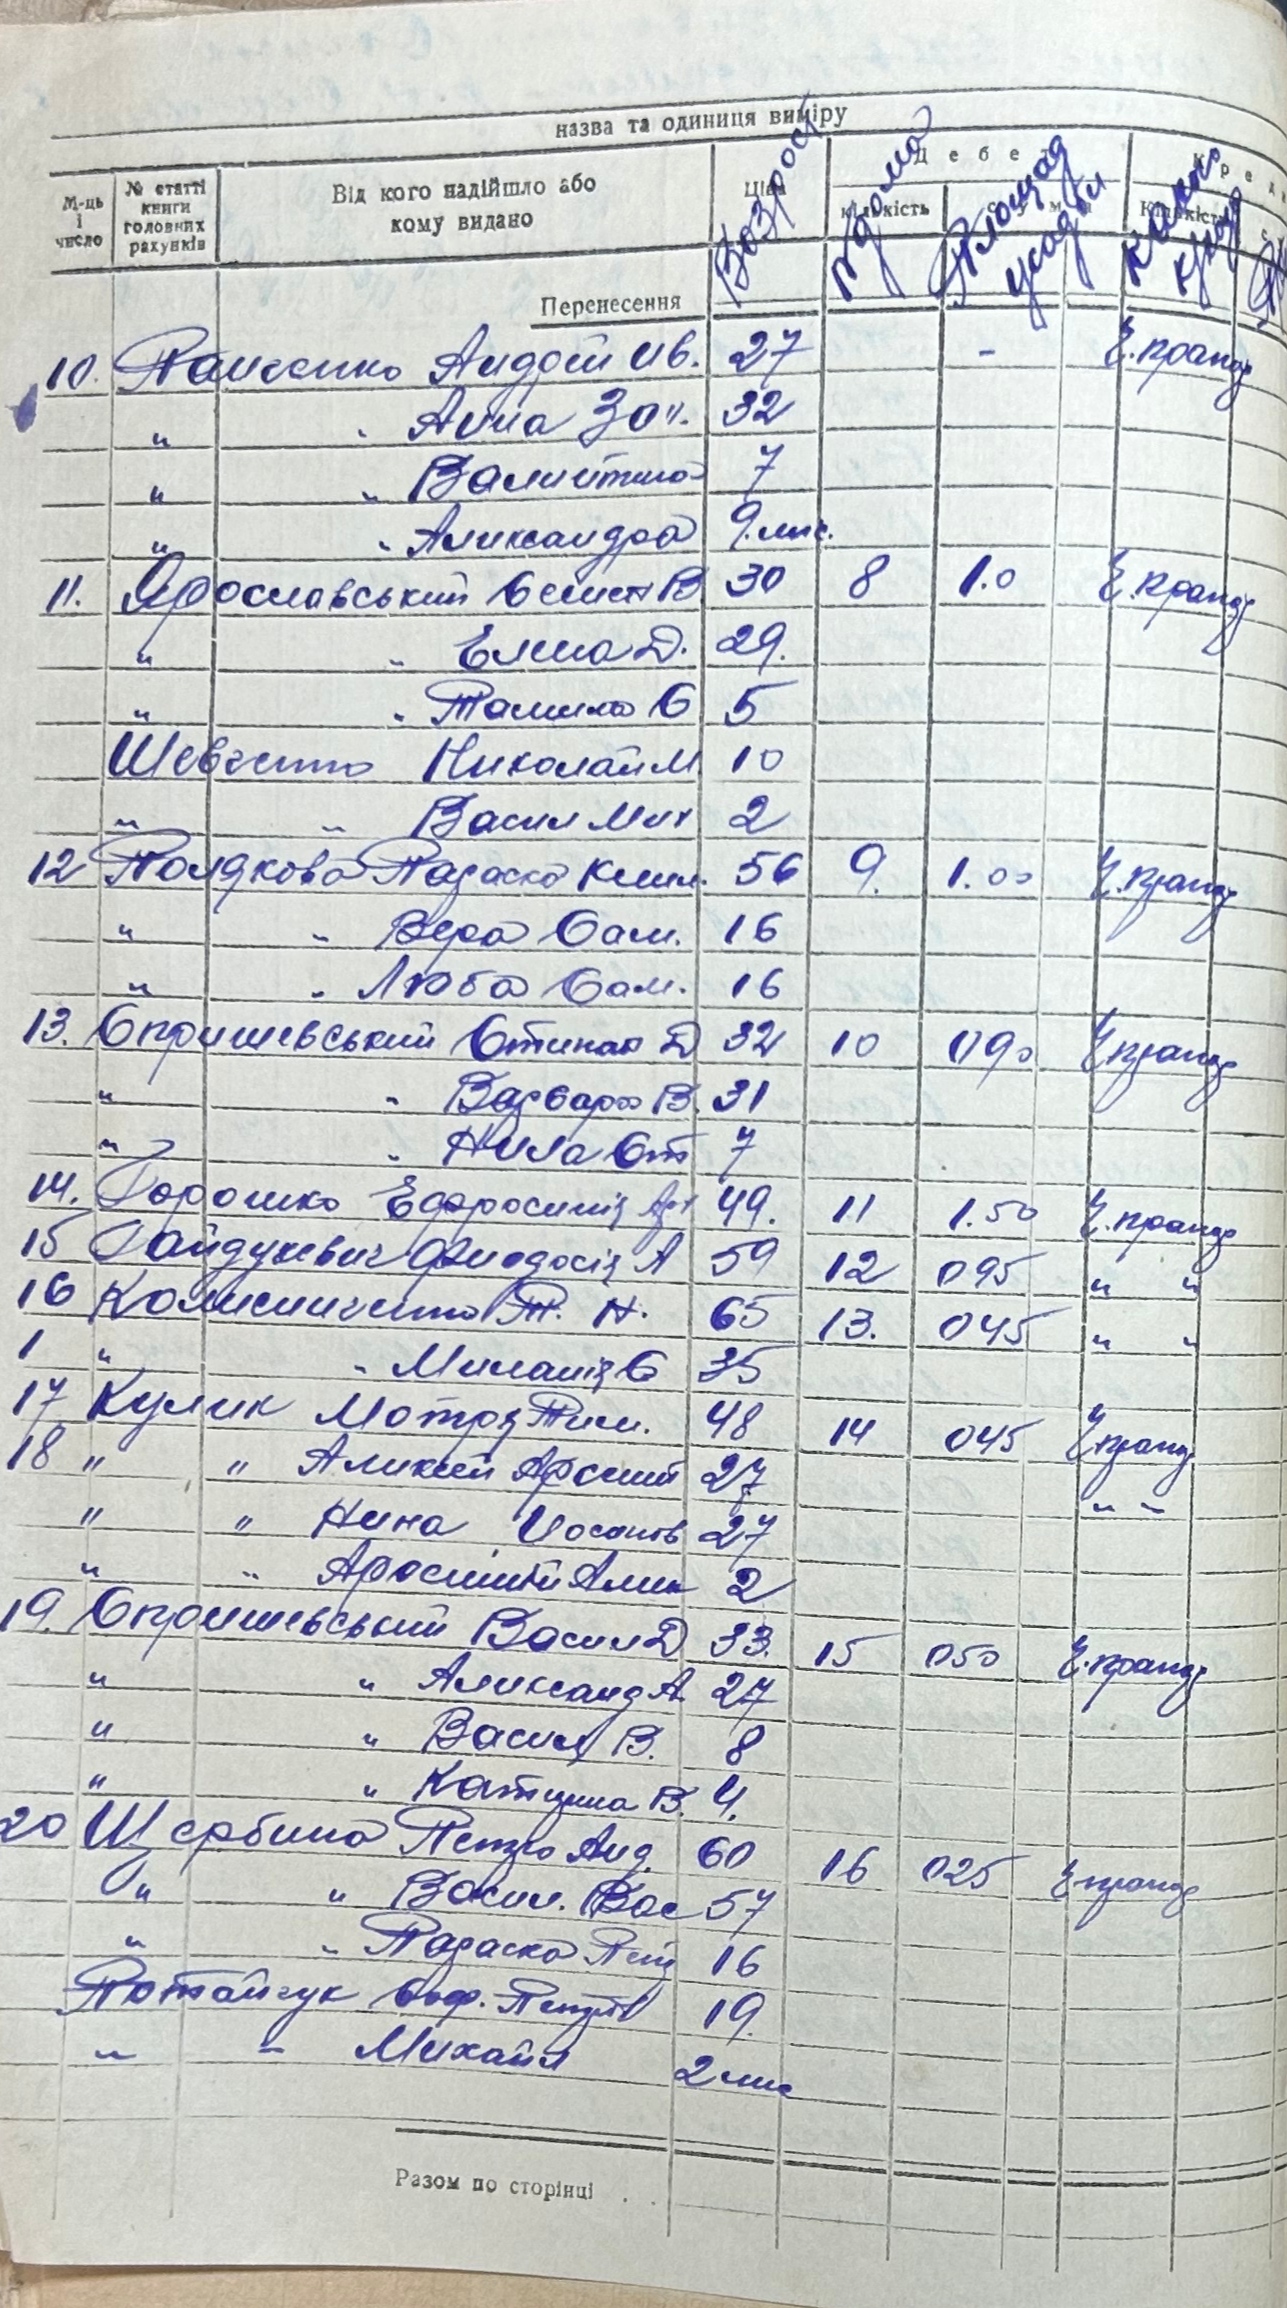 назва та одиниця виміру
М-ць і число
№ статті книги головних рахунків
Від кого надійшло або кому видано
Ціна
Дебет
кількість
сума
Кред
Кількість
Возрост
№ дома
Площад усадьби
Перенесення
10. Панченко Андрей Ив. 27 -
" " Анна Зах. 32
" " Валинтина 7
" " Александра 9 мис.
11. Ярославський Семен В 30 8 1.0
" " Елена Д. 29.
" " Тамила С 5
Шевченко Николай М 10
" " Васил Мих 2
12 Полякова Параска Клим. 56 9. 1.00
" " Вера Сам. 16
" " Люба Сам. 16
13. Опришевський Степан Д 32 10 090
" " Варвара В. 31
" " Нила Ст 7
14. Горошко Ефросиния Арт 49. 11 1.50
15 Гайдукевич Феодосія А 59 12 095 " "
16 Колисниченко Т. Н. 65 13. 045 " "
1 " " Миланія С 35
17 Кулик Мотря Тим. 48 14 045
18 " " Аликсей Арсений 27 " "
" " Нина Иосипов 27
" " Арсений Алик 2
19. Опришевський Васил Д 33. 15 050
" " Александ А 27
" " Васил В. 8
" " Катерина В. 4.
20 Щербина Петро Анд. 60 16 025
" " Васил. Вас 57
" " Параска Пет 16
Потайчук Соф. Петров 19.
" " Михайл 2 мис
Разом по сторінці . .